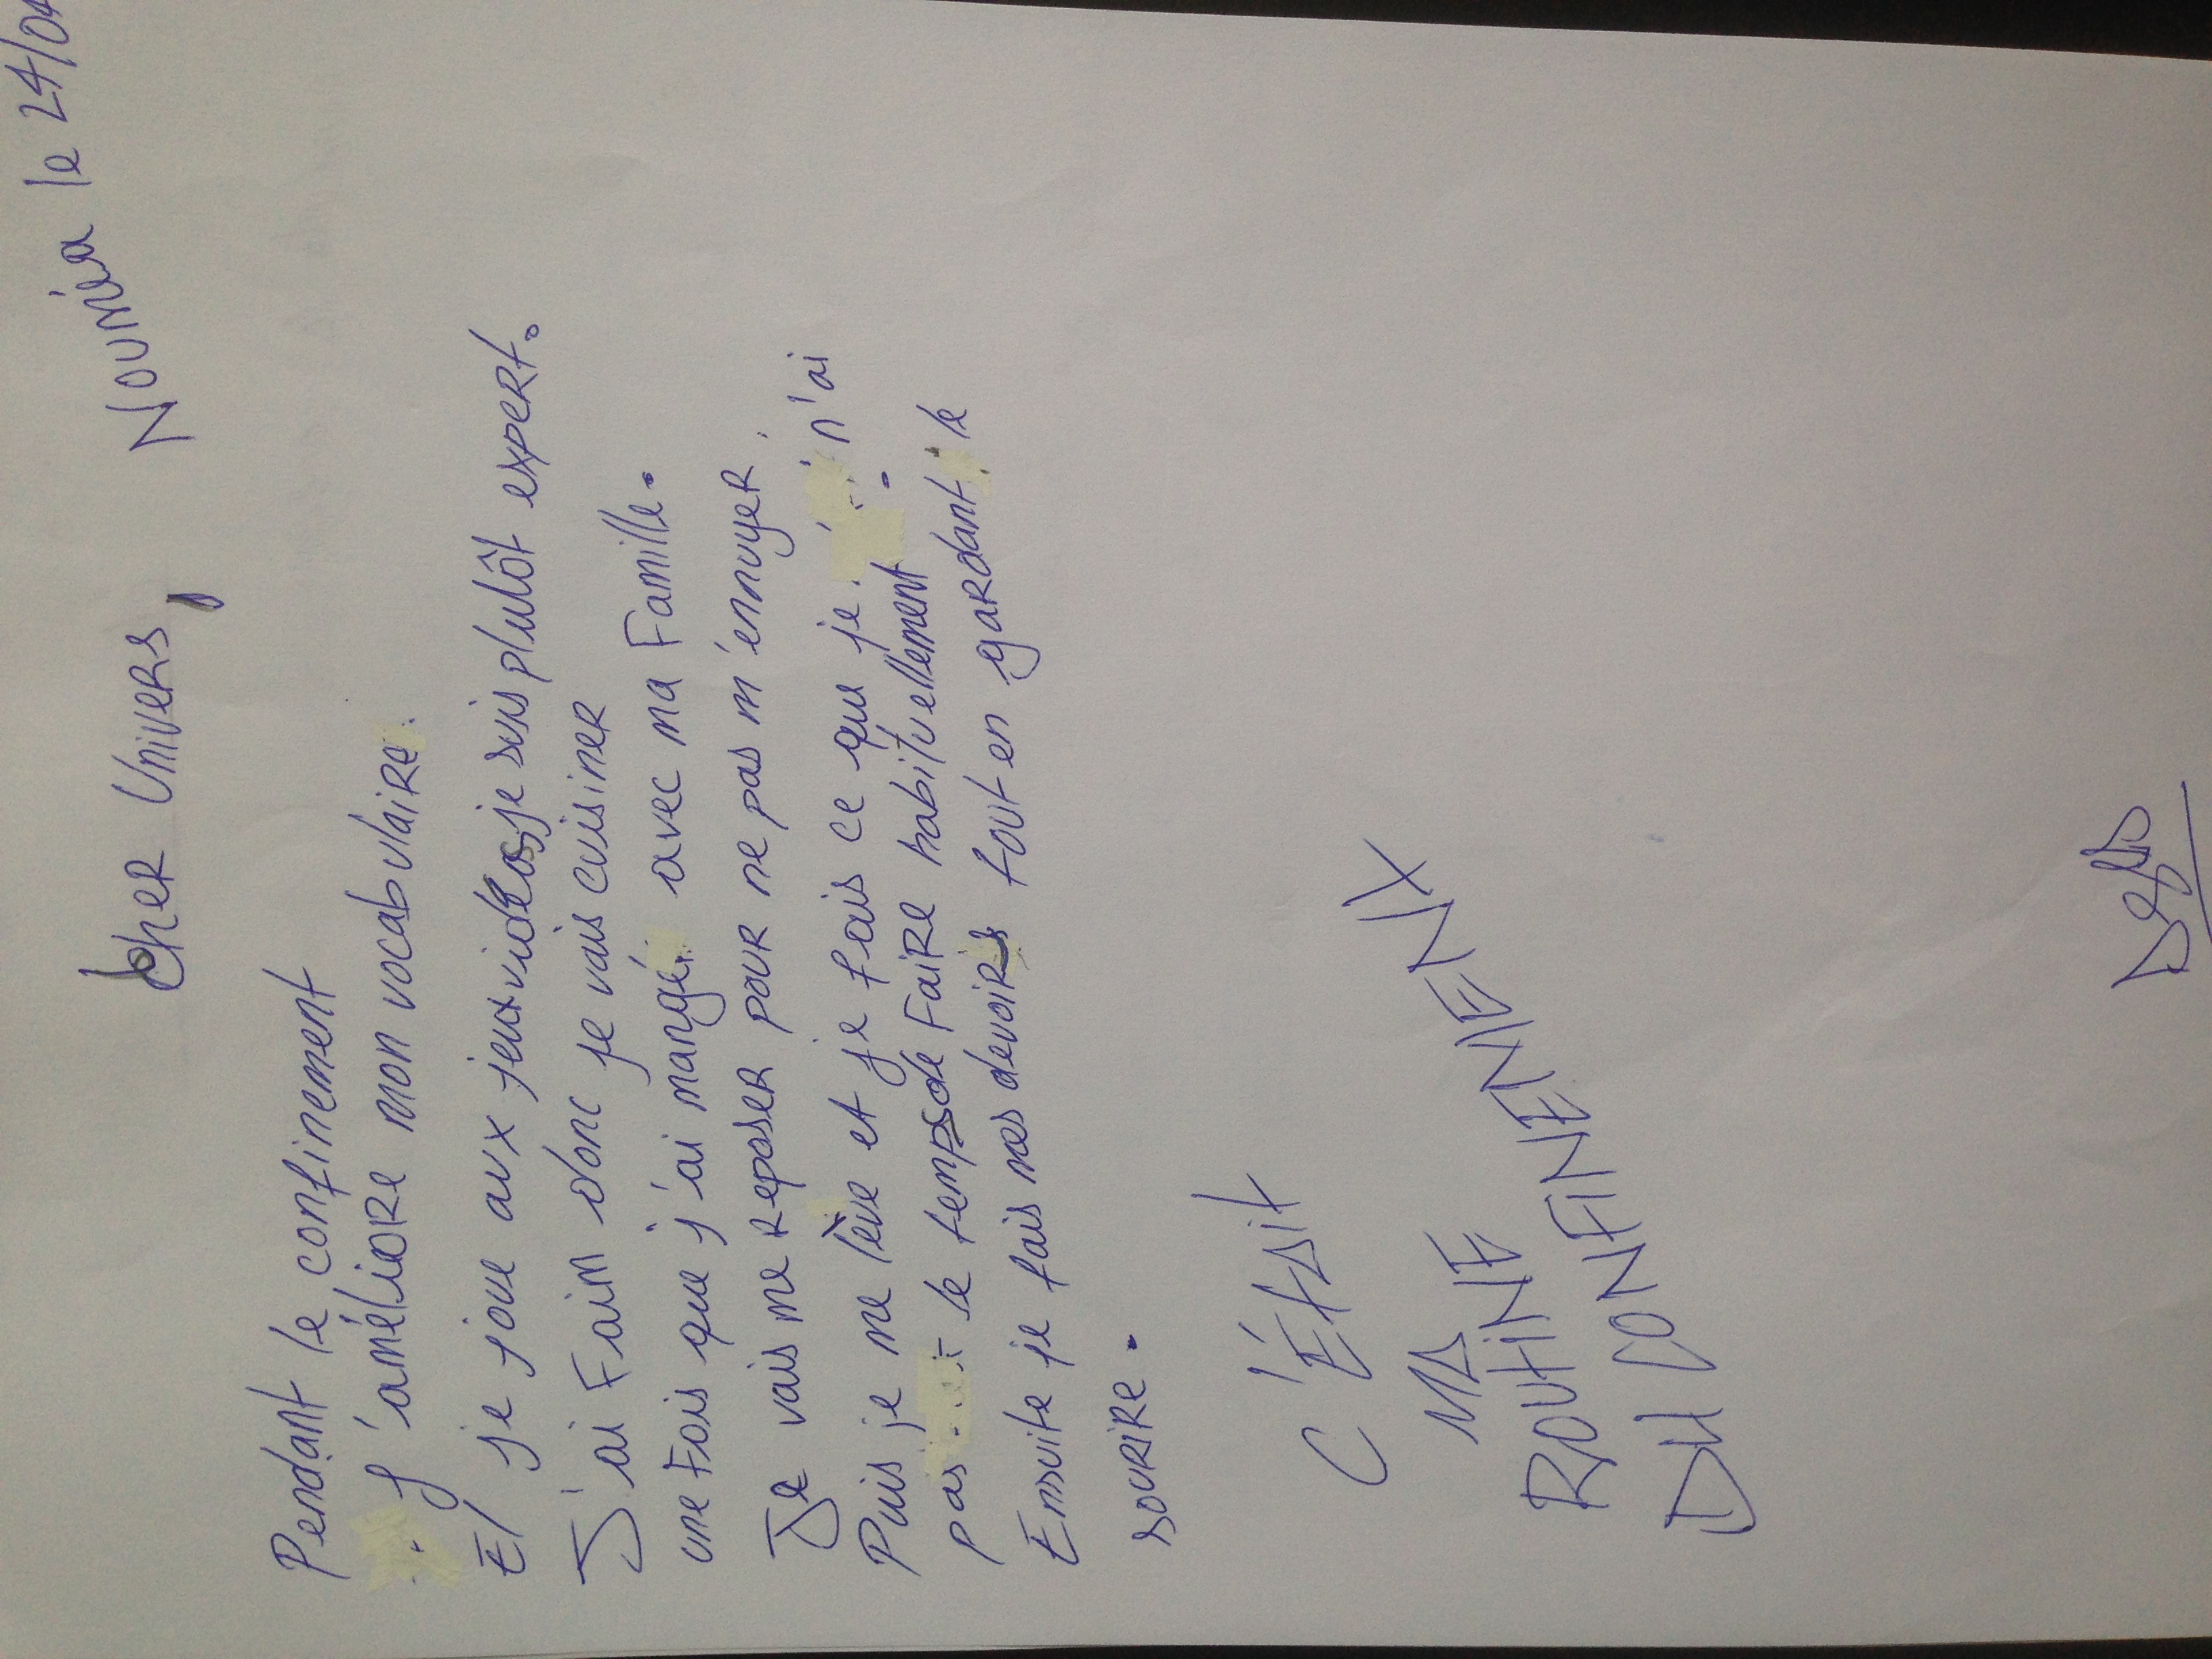 Nouméa le 24/04
Cher Univers,
Pendant le confinement
j'améliore mon vocabulaire
Et je joue aux jeux vidéos je suis plutôt expert.
J'ai Faim donc je vais cuisiner
une Fois que j'ai mangé avec ma Famille.
Je vais me reposer pour ne pas m'ennuyer.
Puis je me lève et je fais ce que je n'ai
pas le temps de Faire habituellement.
Ensuite je fais mes devoirs tout en gardant le
sourire.
C'Était
MA
ROUTINE
DU CONFINEMENT